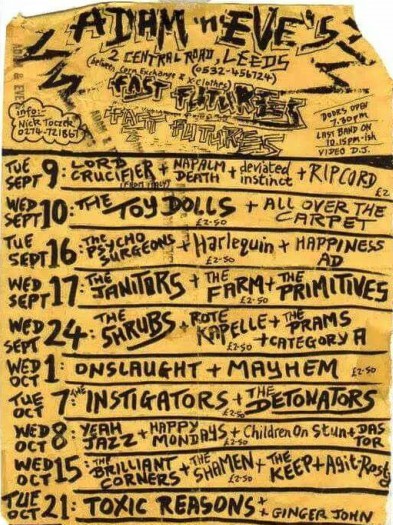 ADAM 'n' EVE'S
2 CENTRAL ROAD, LEEDS
(between Corn Exchange & X Clothes)
(0532-456724)
FAST FUTURES
FAST FUTURES
info:-
NICK TOCZEK
0274-721867
DOORS OPEN
7.30pm
LAST BAND ON
10.15pm-ish
VIDEO D.J.
TUE SEPT 9: LORD CRUCIFIER + NAPALM DEATH + deviated instinct + RIPCORD £2
(FROM ITALY)
WED SEPT 10: THE TOY DOLLS + ALL OVER THE CARPET £2·50
TUE SEPT 16: THE PSYCHO SURGEONS + Harlequin + HAPPINESS AD £2·50
WED SEPT 17: THE JANITORS + THE FARM + THE PRIMITIVES £2·50
WED SEPT 24: THE SHRUBS + ROTE KAPELLE + THE PRAMS + CATEGORY A £2·50
WED OCT 1: ONSLAUGHT + MAYHEM £2·50
TUE OCT 7: THE INSTIGATORS + THE DETONATORS £2·50
WED OCT 8: YEAH JAZZ + HAPPY MONDAYS + Children On Stun + DAS TOR £2·50
WED OCT 15: THE BRILLIANT CORNERS + THE SHAMEN + THE KEEP + Agit-Rosty £2·50
TUE OCT 21: TOXIC REASONS + + GINGER JOHN